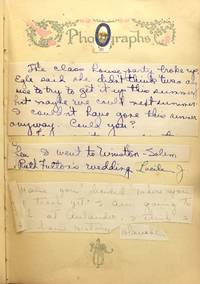 Photographs
The class house-party broke up,
said she didn't think 'twas a
use to try to get it up this summer
but maybe we could next summer.
I couldn't have gone this summer
anyway. Could you?
I went to Winston-Salem
Ruth Fulton's wedding Lucile J
have you decided where you
teach yet? I am going to
at
history